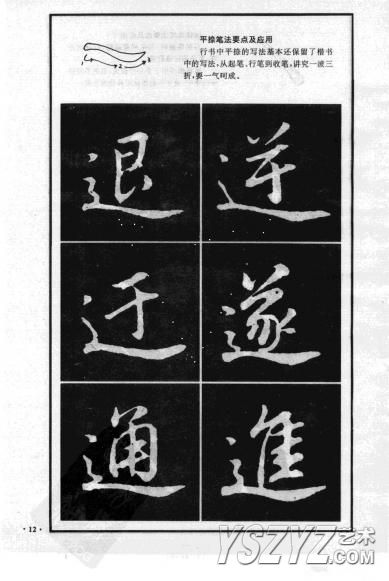 平捺笔法要点及应用
行书中平捺的写法基本还保留了楷书
中的写法,从起笔、行笔到收笔,讲究一波三
折,要一气呵成。
1 2 3
退 逆
迂 遂
通 進
·12·
YSZYZ艺术
.COM